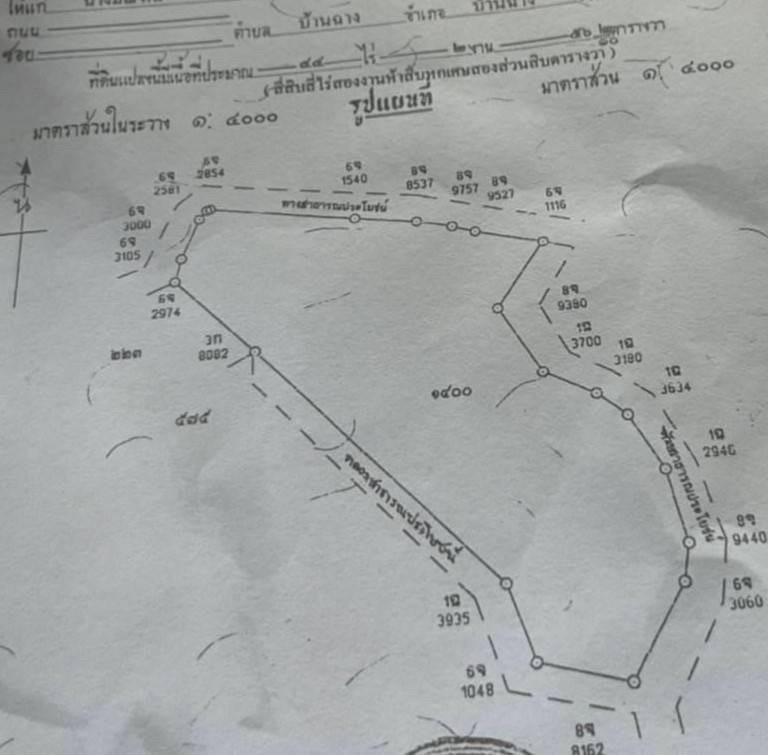 ให้แก่
ถนน ตำบล บ้านฉาง อำเภอ บ้านฉาง
ซอย
ที่ดินแปลงนี้มีเนื้อที่ประมาณ ๔๔ ไร่ ๒ งาน ๕๖ ๒/๑๐ ตารางวา
(สี่สิบสี่ไร่สองงานห้าสิบหกเศษสองส่วนสิบตารางวา)
มาตราส่วนในระวาง ๑: ๔๐๐๐ รูปแผนที่ มาตราส่วน ๑: ๔๐๐๐
น
6จ 2581
6จ 2854
6จ 1540
8จ 8537
8จ 9757
8จ 9527
6จ 1116
ทางสาธารณประโยชน์
6จ 3000
6จ 3105
6จ 2974
8จ 9380
1ฉ 3700
1ฉ 3180
1ฉ 3634
3ก 8082
๒๒๓
๑๔๐๐
๕๗๕
1ฉ 2946
คลองสาธารณประโยชน์
สาธารณประโยชน์
8จ 9440
6จ 3060
1ฉ 3935
6จ 1048
8จ 8162